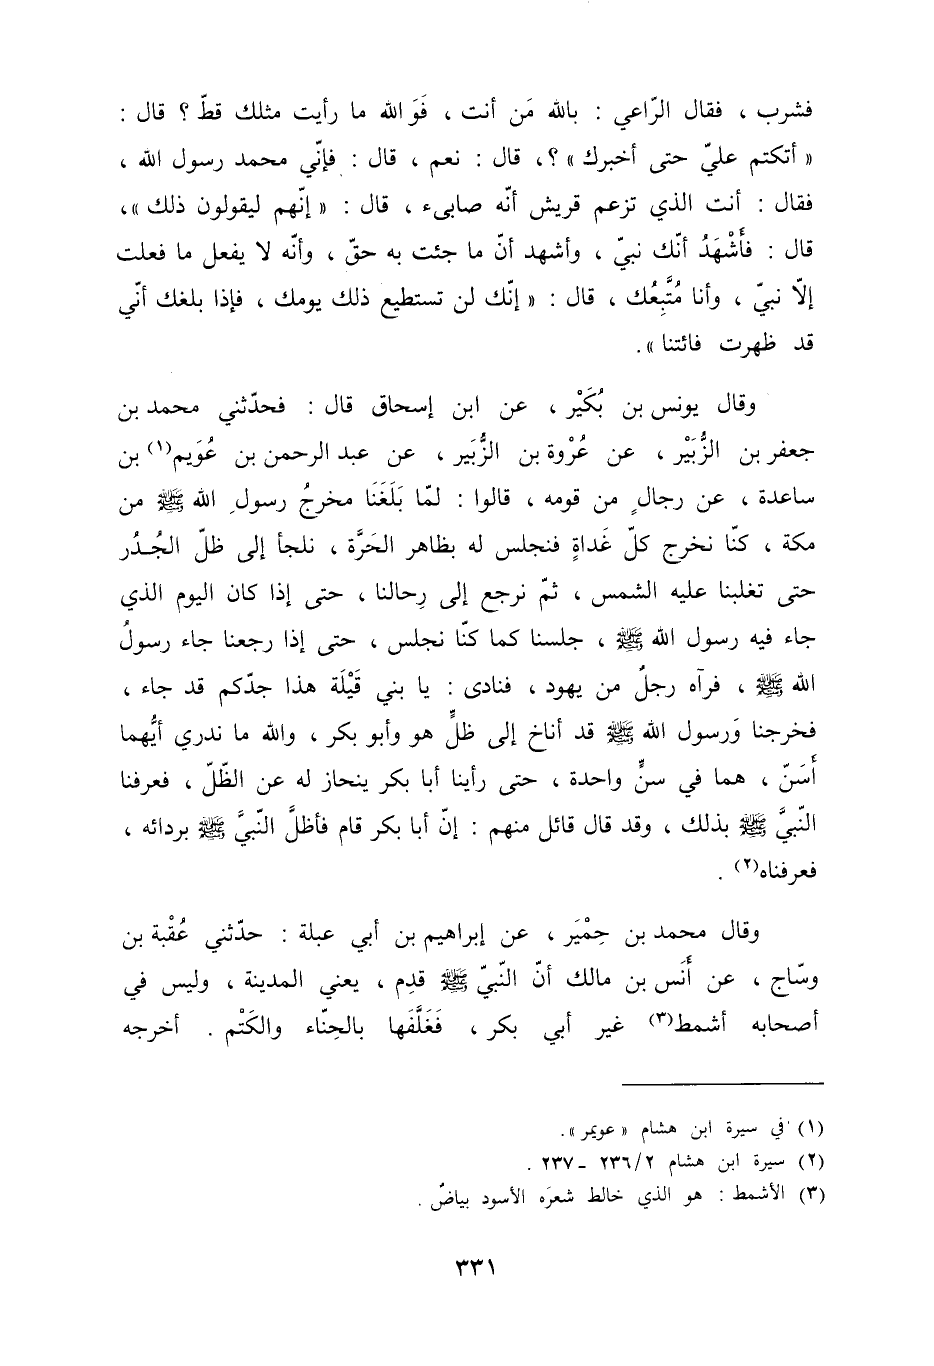 فشرب ، فقال الرّاعي : بالله مَن أنت ، فَوَ الله ما رأيت مثلك قطّ ؟ قال :
« أتكتم عليّ حتى أخبرك » ؟، قال : نعم ، قال : فإنّي محمد رسول الله ،
فقال : أنت الذي تزعم قريش أنّه صابىء ، قال : « إنّهم ليقولون ذلك »،
قال : فأَشْهَدُ أنّك نبيّ ، وأشهد أنّ ما جئت به حقّ ، وأنّه لا يفعل ما فعلت
إلّا نبيّ ، وأنا مُتَّبِعُك ، قال : « إنّك لن تستطيع ذلك يومك ، فإذا بلغك أنّي
قد ظهرت فائتنا ».
وقال يونس بن بُكَيْر ، عن ابن إسحاق قال : فحدّثني محمد بن
جعفر بن الزُّبَيْر ، عن عُرْوة بن الزُّبَير ، عن عبد الرحمن بن عُوَيم(١) بن
ساعدة ، عن رجالٍ من قومه ، قالوا : لمّا بَلَغَنَا مخرجُ رسولِ الله ﷺ من
مكة ، كنّا نخرج كلّ غَداةٍ فنجلس له بظاهر الحَرَّة ، نلجأ إلى ظلّ الجُدُر
حتى تغلبنا عليه الشمس ، ثمّ نرجع إلى رِحالنا ، حتى إذا كان اليوم الذي
جاء فيه رسول الله ﷺ ، جلسنا كما كنّا نجلس ، حتى إذا رجعنا جاء رسولُ
الله ﷺ ، فرآه رجلٌ من يهود ، فنادى : يا بني قَيْلَة هذا جدّكم قد جاء ،
فخرجنا وَرسول الله ﷺ قد أناخ إلى ظلٍّ هو وأبو بكر ، والله ما ندري أيُّهما
أَسَنّ ، هما في سنٍّ واحدة ، حتى رأينا أبا بكر ينحاز له عن الظّلّ ، فعرفنا
النّبيَّ ﷺ بذلك ، وقد قال قائل منهم : إنّ أبا بكر قام فأظلَّ النّبيَّ ﷺ بردائه ،
فعرفناه(٢) .
وقال محمد بن حِمْيَر ، عن إبراهيم بن أبي عبلة : حدّثني عُقْبة بن
وسّاج ، عن أَنَس بن مالك أنّ النّبيّ ﷺ قدِم ، يعني المدينة ، وليس في
أصحابه أشمط(٣) غير أبي بكر ، فَغَلَّفَها بالحِنّاء والكَتْم . أخرجه
(١) في سيرة ابن هشام « عويمر ».
(٢) سيرة ابن هشام ٢/٢٣٦ - ٢٣٧ .
(٣) الأشمط : هو الذي خالط شعرَه الأسود بياضٌ .
٣٣١